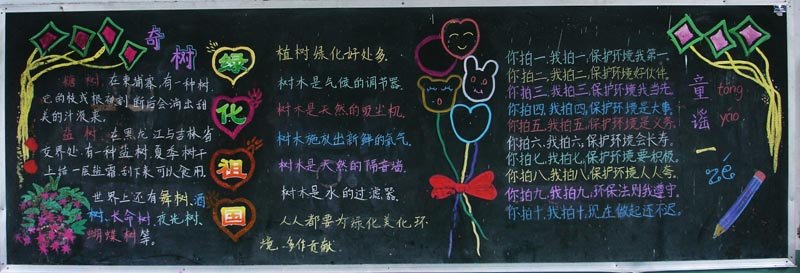 奇树
糖树,在柬埔寨,有一种树,
它的枝或根被割断后会淌出甜
美的汁液来。
盐树,在黑龙江与吉林省
交界处,有一种盐树,夏季树干
上结一层盐霜,刮下来可以食用。
世界上还有舞树、酒
树、长命树、夜光树、
蝴蝶树等。
绿化祖国
植树绿化好处多.
树木是气候的调节器.
树木是天然的吸尘机.
树木施放出新鲜的氧气.
树木是天然的隔音墙.
树木是水的过滤器.
人人都要为绿化美化环
境.多作贡献.
你拍一,我拍一,保护环境我第一
你拍二,我拍二,保护环境好伙伴.
你拍三,我拍三,保护环境我当先.
你拍四,我拍四,保护环境是大事.
你拍五,我拍五,保护环境是义务.
你拍六,我拍六,保护环境会长寿.
你拍七,我拍七,保护环境要积极.
你拍八,我拍八,保护环境人人夸.
你拍九,我拍九,环保法则我遵守.
你拍十,我拍十,现在做起还不迟.
童谣一则
tóng
yáo
zé